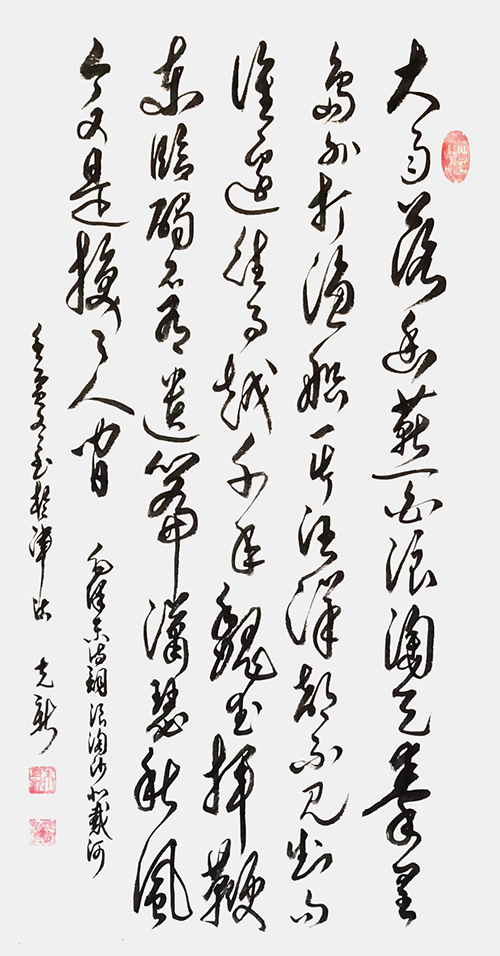 大雨落幽燕白浪滔天秦皇
島外打漁船一片汪洋都不見知向
誰邊往事越千年魏武揮鞭
東臨碣石有遺篇瀟瑟秋風
今又是換了人間
毛澤東詩詞浪淘沙北戴河
壬寅冬至於津沽 克新